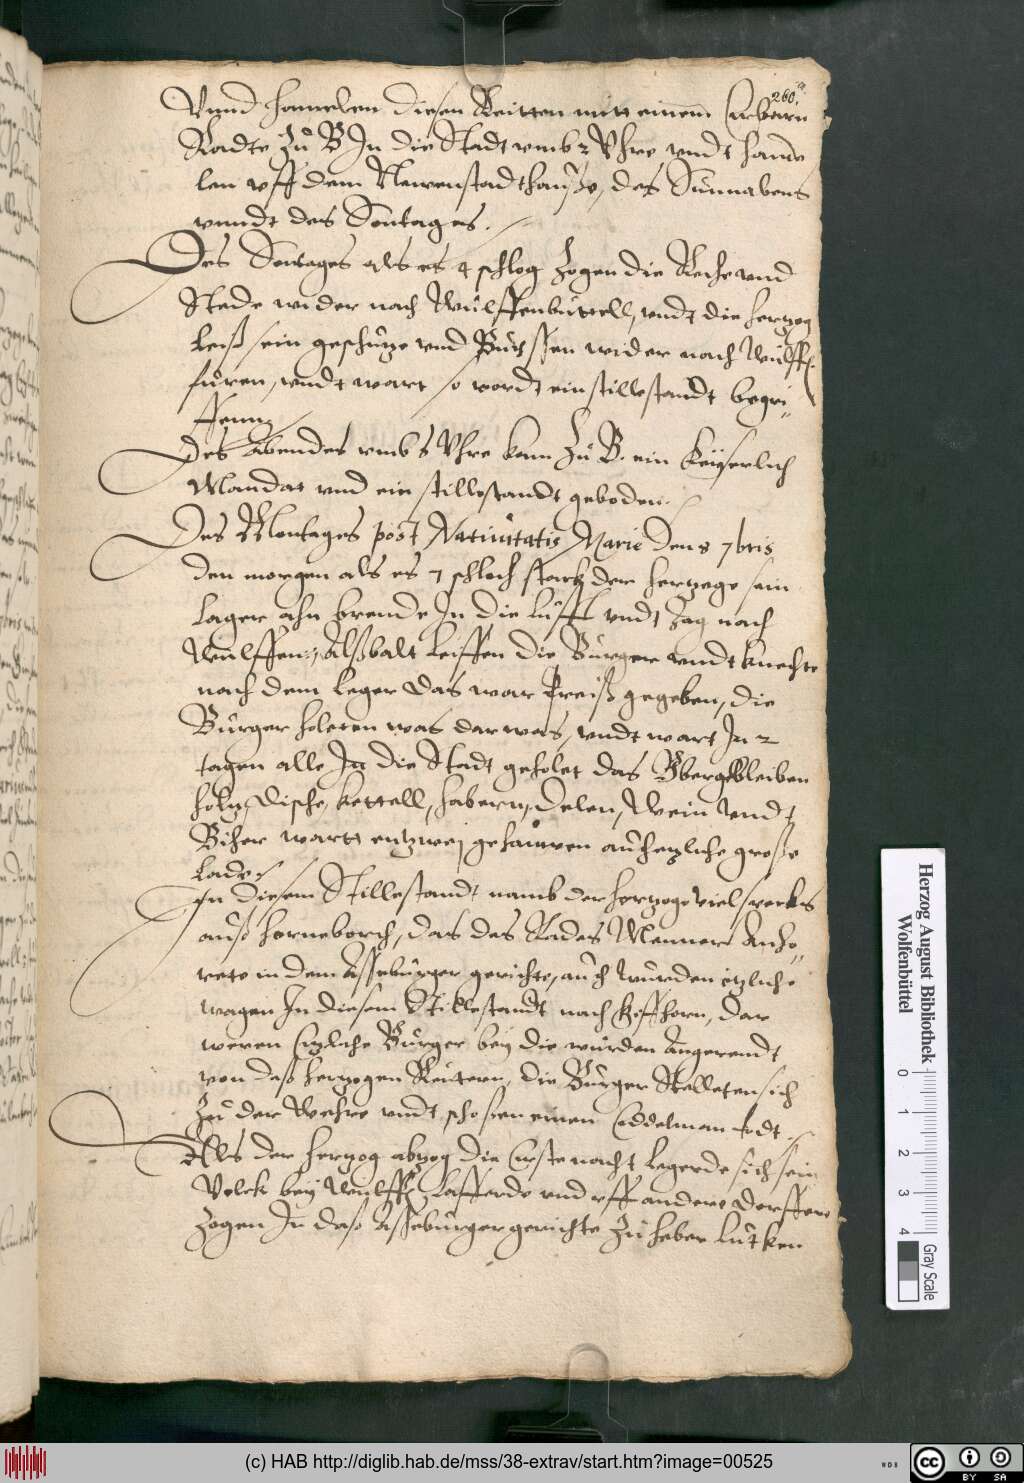 260.
Vnnd hannelen diesen Reitten mitt einem Erbarn
Radte Zů B In die Stadt vmb 2 Vhre vndt hande
len vff dem Newenstadthauße, des Sünnabens
vnndt des Sontages.
Des Sontages als es 4 schlog Zogen die Reche vnd
Stede wider nach Wulffenbuttell, vndt die hertzog
ließ sein geschutze vnd Buchssen wider nach Wulff
furen, vndt wart so wordt ein stillestandt begri
ffenn
Des Abendes vmb 5 Vhre kam Zů B. ein Keÿserlich
Mandat vnd ein stillestandt geboden.
Des Montages post Natiuitatis Marie den 8 7bris
den morgen als es 7 schloch stack der hertzoge sein
Lager ahn brende In die lufft vndt Zog nach
Wulffen:, Alßbalt leiffen die Burger vndt knechte
nach dem leger das war Preiß gegeben, die
Bürger holeten was dar was, vndt wart In 2
tagen alle In die Stadt geholet das Vbergebleiben
holtz, Dische, kettell, habern, Delen, Wein vndt
Biher wartt entzwej gehauwen auch etzliche große
Laden
In diesem Stillestandt namb der hertzoge viel
auß horneborch, das des Rades Mennern Anho
rete in dem Asseburger gerichte, auch wurden etzliche
wagen In diesem Stillestandt nach Giffhorn, dar
weren Etzliche Burger beÿ die wurden Angerandt
von daß hertzogen Reutern, die Bürger Stelleten sich
Zu der Wehre vndt schoßen einen Eddelman todt
Als der hertzog abzog die Erste nacht legerde sich sein
Volck beÿ Wulff Lafferde vnd vff andere Dorffere
Zogen In daß Asseburger gerichte Zů heber lutken
Herzog August Bibliothek
Wolfenbüttel
0 1 2 3 4
Gray Scale
(c) HAB http://diglib.hab.de/mss/38-extrav/start.htm?image=00525
WDB
CC BY SA